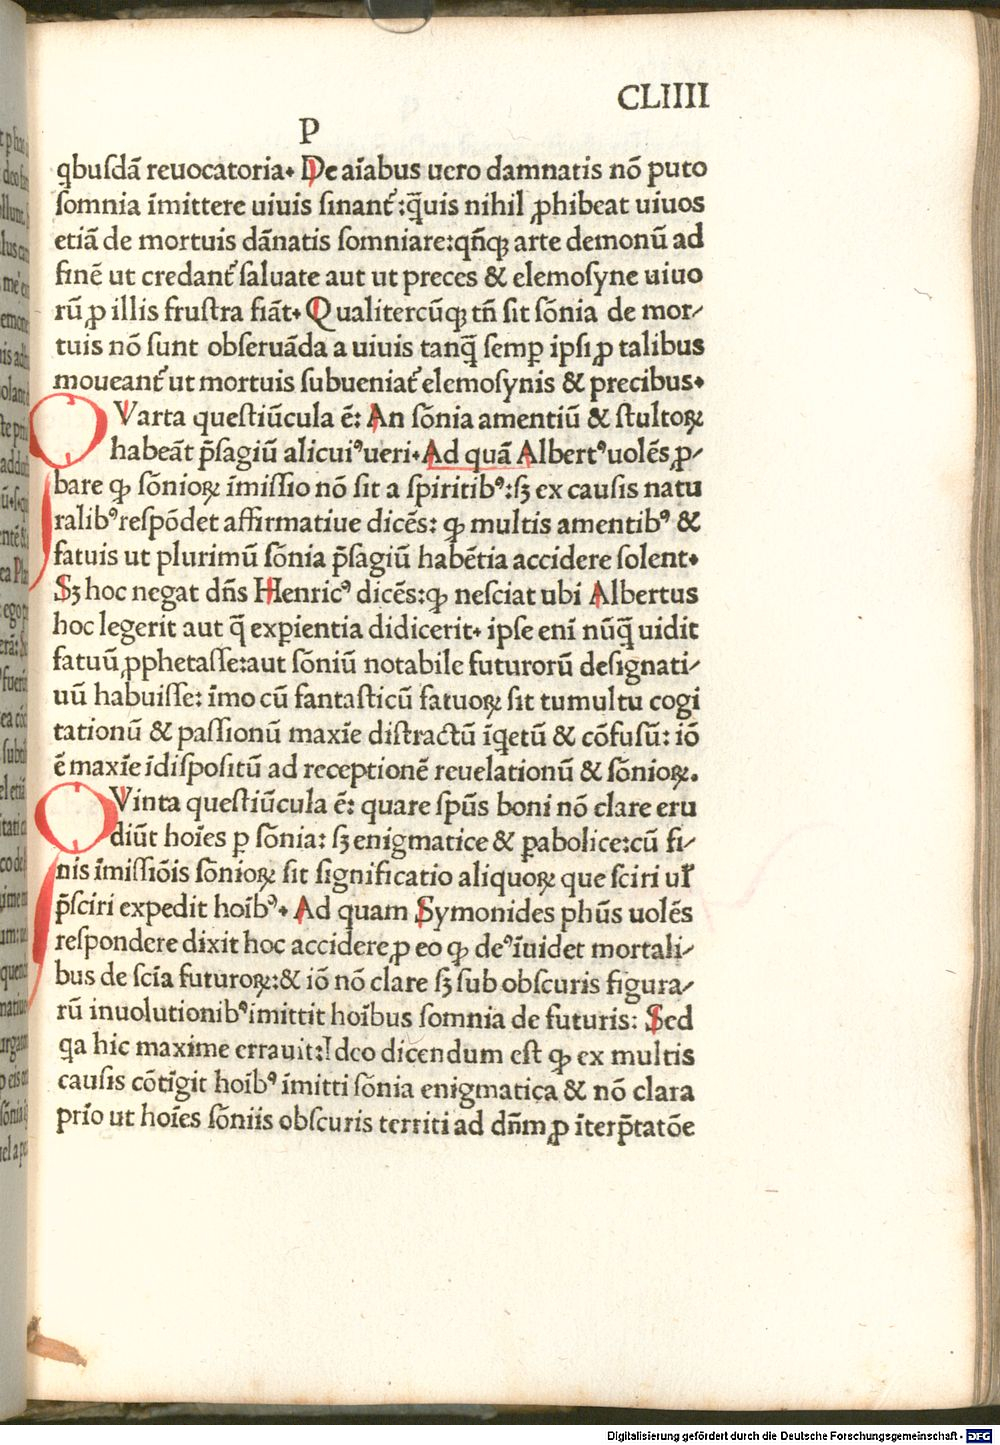 CLIIII
P
qbuſdā reuocatoria. De aīabus uero damnatis nō puto
ſomnia īmittere uiuis ſinant᷑:q̄uis nihil ꝓhibeat uiuos
etiā de mortuis dānatis ſomniare:qn̄qꝫ arte demonū ad
finē ut credant᷑ ſaluate aut ut preces & elemoſyne uiuo
rū ꝓ illis fruſtra fiāt. Qualitercūqꝫ tn̄ ſit ſōnia de mor-
tuis nō ſunt obſeruāda a uiuis tanq̄ ſemꝑ ipſi ꝓ talibus
moueant᷑ ut mortuis ſubueniat᷑ elemoſynis & precibus.
QVarta queſtiūcula ē: An ſōnia amentiū & ſtultoꝝ
habeāt p̄ſagiū alicuiꝰ ueri. Ad quā Albertꝰ uolēs ꝓ-
bare ꝙ ſōnioꝝ īmiſſio nō ſit a ſpiritibꝰ:ſꝫ ex cauſis natu
ralibꝰ reſpōdet affirmatiue dicēs: ꝙ multis amentibꝰ &
fatuis ut plurimū ſōnia p̄ſagiū habētia accidere ſolent.
Sꝫ hoc negat dn̄s Henricꝰ dicēs:ꝙ neſciat ubi Albertus
hoc legerit aut q̄ exꝑientia didicerit. ipſe enī nūq̄ uidit
fatuū ꝓphetaſſe:aut ſōniū notabile futurorū deſignati-
uū habuiſſe: īmo cū fantaſticū fatuoꝝ ſit tumultu cogi
tationū & paſſionū maxīe diſtractū īqetū & cōfuſū: iō
ē maxīe īdiſpoſitū ad receptionē reuelationū & ſōnioꝝ.
QVinta queſtiūcula ē: quare ſpūs boni nō clare eru
diūt hoīes ꝑ ſōnia: ſꝫ enigmatice & ꝑabolice:cū fi-
nis īmiſſiōis ſōnioꝝ ſit ſignificatio aliquoꝝ que ſciri uł
p̄ſciri expedit hoībꝰ. Ad quam Symonides phūs uolēs
reſpondere dixit hoc accidere ꝓ eo ꝙ deꝰ īuidet mortali-
bus de ſcīa futuroꝝ:& iō nō clare ſꝫ ſub obſcuris figura-
rū inuolutionibꝰ imittit hoībus ſomnia de futuris: Sed
qa hic maxime errauit:Ideo dicendum eſt ꝙ ex multis
cauſis cōtīgit hoībꝰ īmitti ſōnia enigmatica & nō clara
prīo ut hoīes ſōniis obſcuris territi ad dn̄m ꝓ īterp̄tatōe
Digitalisierung gefördert durch die Deutsche Forschungsgemeinschaft - DFG